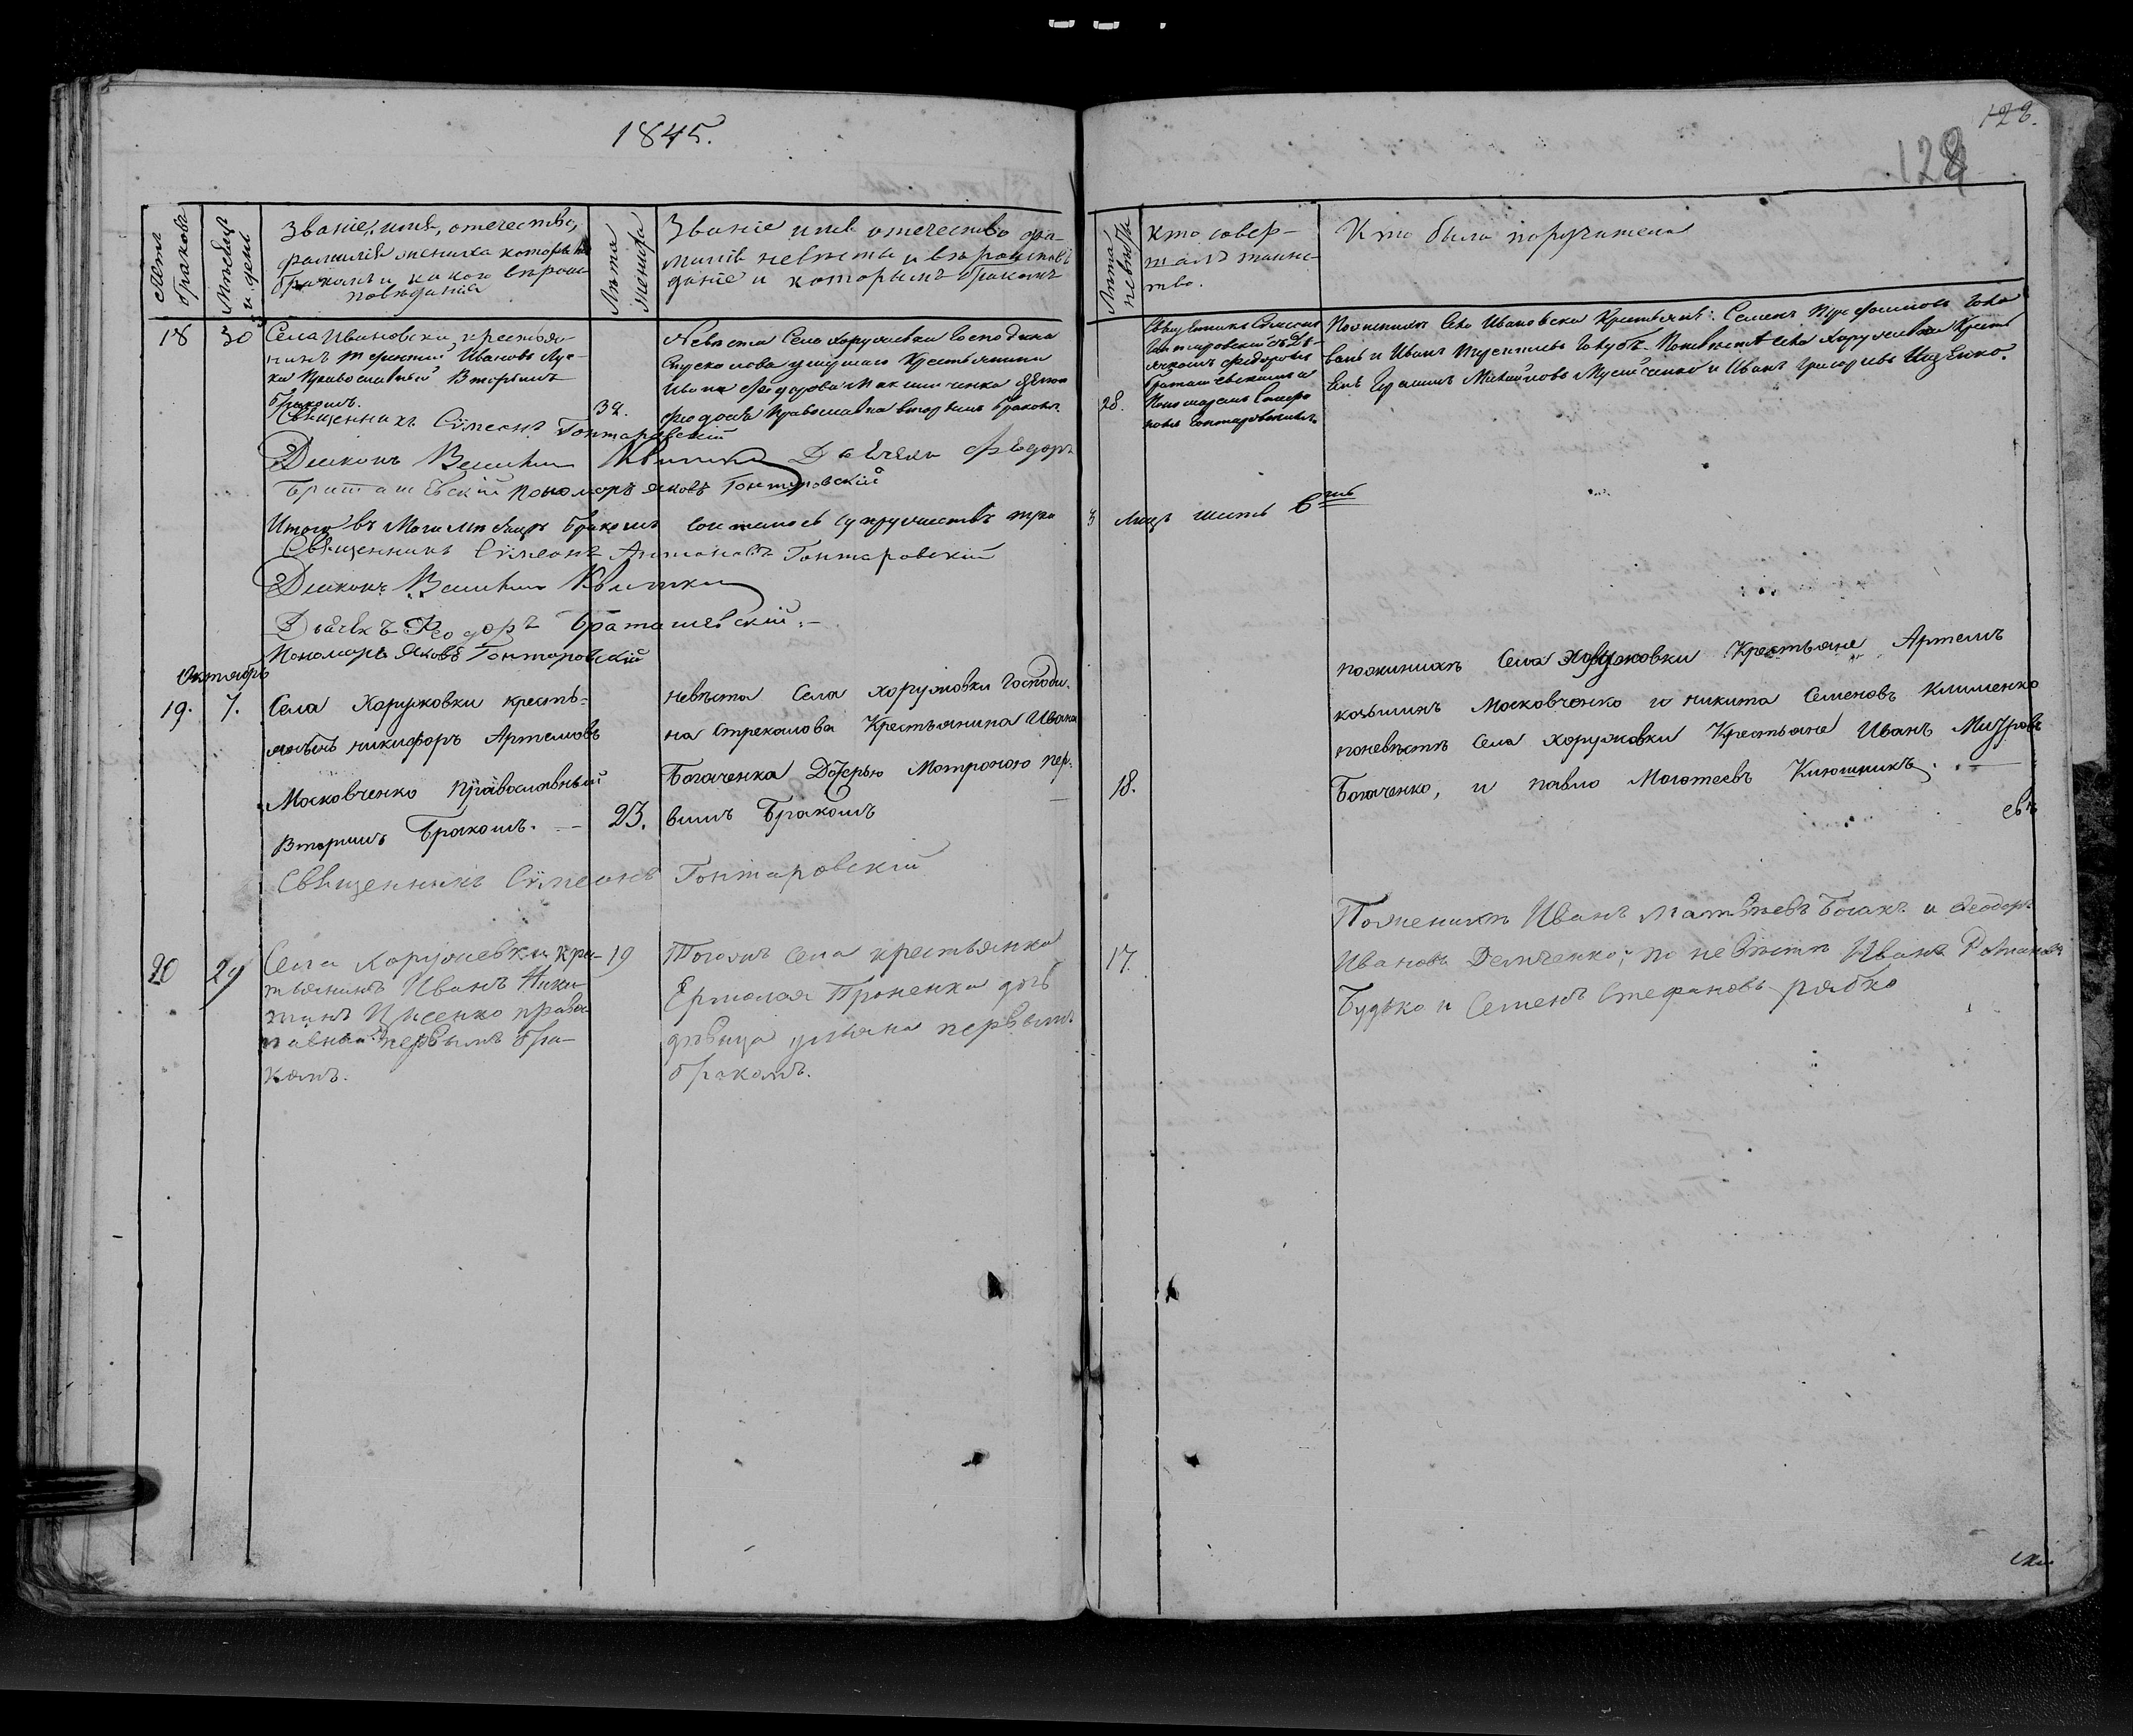 1845.
128.
128
Счетъ браковъ
Мѣсяцъ и день
Званіе, имя, отечество,
фамилія жениха которымъ
бракомъ и какого вѣроис-
повѣданія
Лѣта жениха
Званіе имя отечество фа-
милія невѣсты и вѣроисповѣ
даніе и которымъ бракомъ
Лѣта невѣсты
Кто совер-
шалъ таинс-
тво.
Кто были поручители
18
30
Села Ивановки крестья-
нинъ Терентий Ивановъ
Православный Вторымъ
бракомъ.
38.
Невѣста Села Хоружевки Господина
Стрекалова крестьянина
Ивана Федорова Максимченка
Федосья Православна вторымъ бракомъ
28.
Священникъ Симеонъ
Гонтаровскій съ Дь-
ячкомъ Федоромъ
Браташевскимъ и
Пономаремъ
Гонтаровскимъ.
Поженихѣ Села Ивановки Крестьяне: Семенъ
и Иванъ Голубъ. Поневѣстѣ села Хоружевки Кресть
Михайловъ и Иванъ Григорьевъ
Священникъ Симеонъ Гонтаровскій
Диаконъ Василій Квитка Дьячекъ Федоръ
Браташевскій Пономарь Яковъ Гонтаровскій
Итого въ мѣсяцѣ бракомъ сочеталось супружествъ три
3 лицъ шесть 6ть
Священникъ Симеонъ Антоновъ Гонтаровскій
Диаконъ Василій Квитка
Дьячекъ Феодоръ Браташевскій.-
Пономарь Яковъ Гонтаровскій
Октябрь
19.
7.
Села Хоружовки кресть-
янинъ никифоръ Артемовъ
Московченко Православный
Вторымъ Бракомъ. —
23.
невѣста Села хоружовки Господи-
на Стрекалова Крестьянина Ивана
Богаченка Дочерью Матроною пер-
вымъ Бракомъ
18.
поженихѣ Села Хоружовки Крестьяне Артемъ
козьминъ Московченко и никита Семеновъ Клименко
поневѣстѣ Села хоружовки Крестьяне Иванъ
Богаченко, и павло Мат­еевъ Ключникъ.
евъ
Священникъ Симеонъ Гонтаровскій
20
29
Села Хоружевки кре-
стьянинъ Иванъ Ники-
тинъ Цысенко право
славный первымъ бра-
комъ.
19
Тогожъ села крестьянка
Ермолая Проненка дочь
дѣвица ульяна первымъ
бракомъ.
17.
Поженихѣ Иванъ Матвѣевъ Богакъ и Феодоръ
Ивановъ Демченко; по невѣстѣ Иванъ Романовъ
Будько и Семенъ Стефановъ рябко